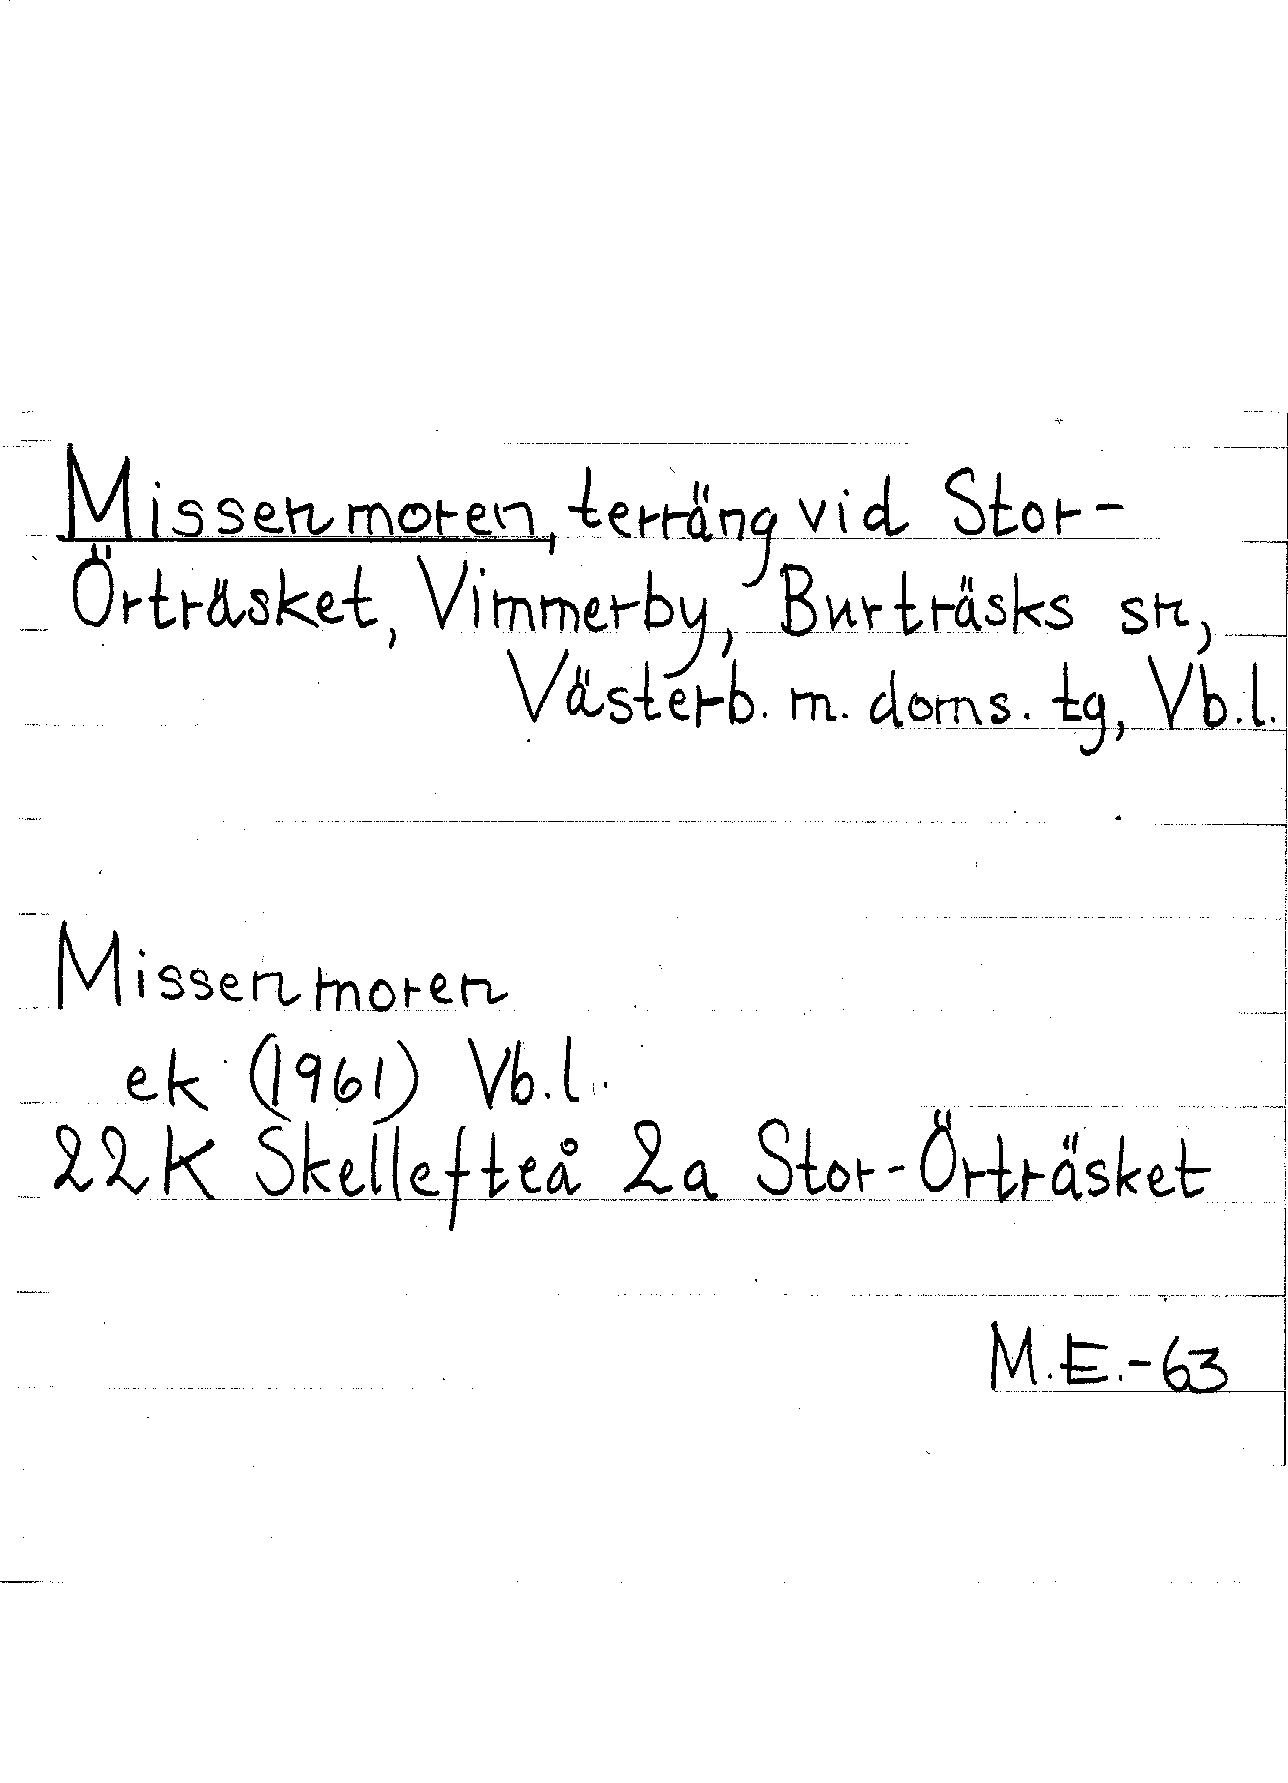 Missenmoren, terräng vid Stor-
Örträsket, Vimmerby, Burträsks sn,
Västerb. m. doms. tg, Vb.l.
Missenmoren
ek (1961) Vb.l.
22K Skellefteå 2a Stor-Örträsket
M.E.-63